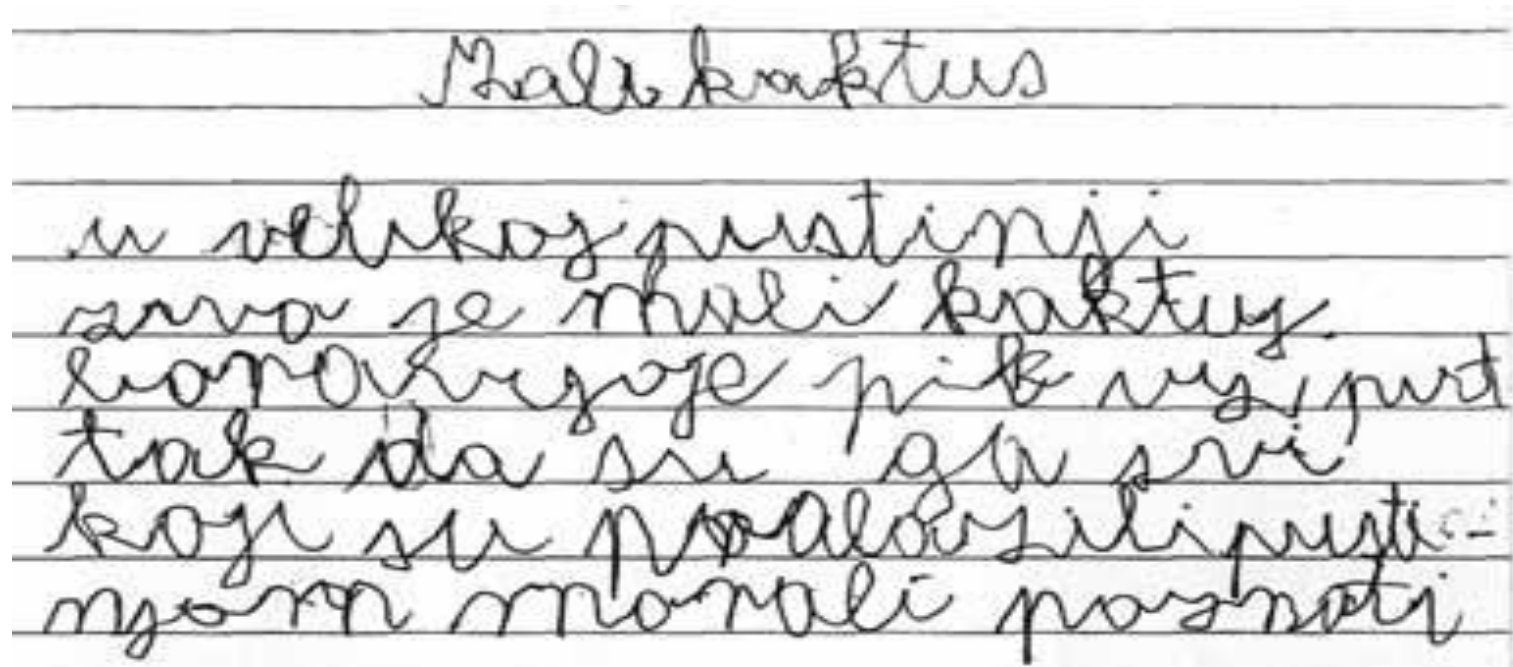 Mali kaktus
u velikoj pustinji
se mali kaktus
pik uz put
tak da su ga svi
koji su prolazili pusti-
njom morali poznati